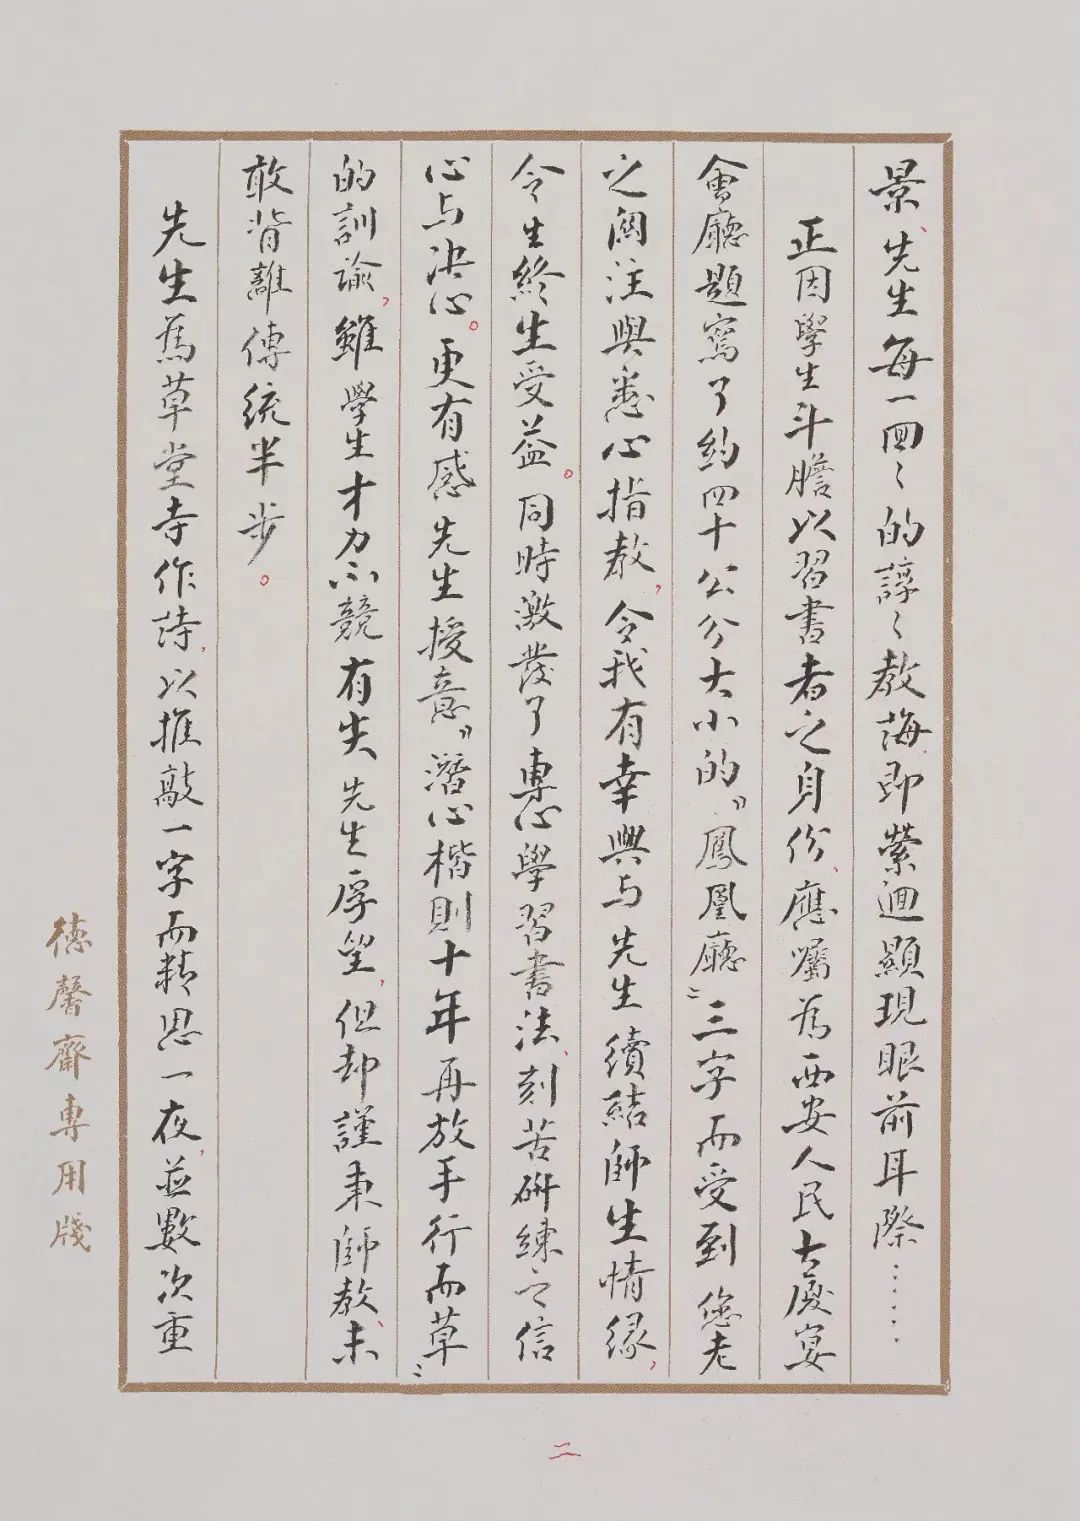 景、先生每一回々的諄々教誨，即縈迴顯現眼前耳際……
正因學生斗膽以習書者之身份、應囑為西安人民大廈宴
會廳題寫了約四十公分大小的〝鳳凰廳〞三字而受到您老
之關注與悉心指教，令我有幸與与先生續結師生情緣，
令生終生受益。同時激發了專心學習書法、刻苦研練之信
心与決心。更有感先生授意〝潛心楷則十年再放手行而草〞
的訓諭，雖學生才力不競有失先生厚望，但却謹秉師教、未
敢背離傳統半步。
先生為草堂寺作詩，以推敲一字而精思一夜，並數次重
德馨齋專用牋
二